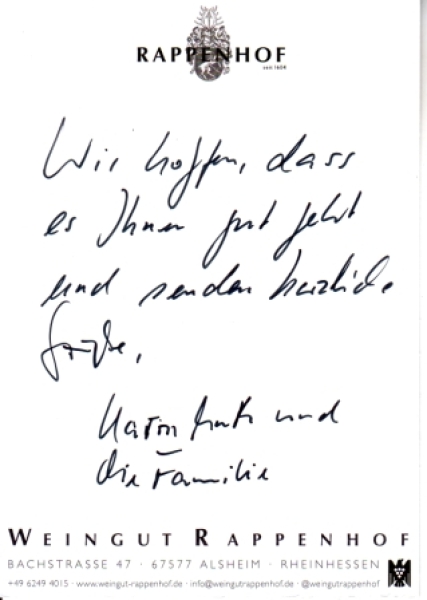 RAPPENHOF
seit 1604
Wir hoffen, dass
es Ihnen gut geht
und senden herzliche
Grüße,
Karin und
die Familie
WEINGUT RAPPENHOF
BACHSTRASSE 47 · 67577 ALSHEIM · RHEINHESSEN
+49 6249 4015 · www.weingut-rappenhof.de · info@weingutrappenhof.de · @weingutrappenhof